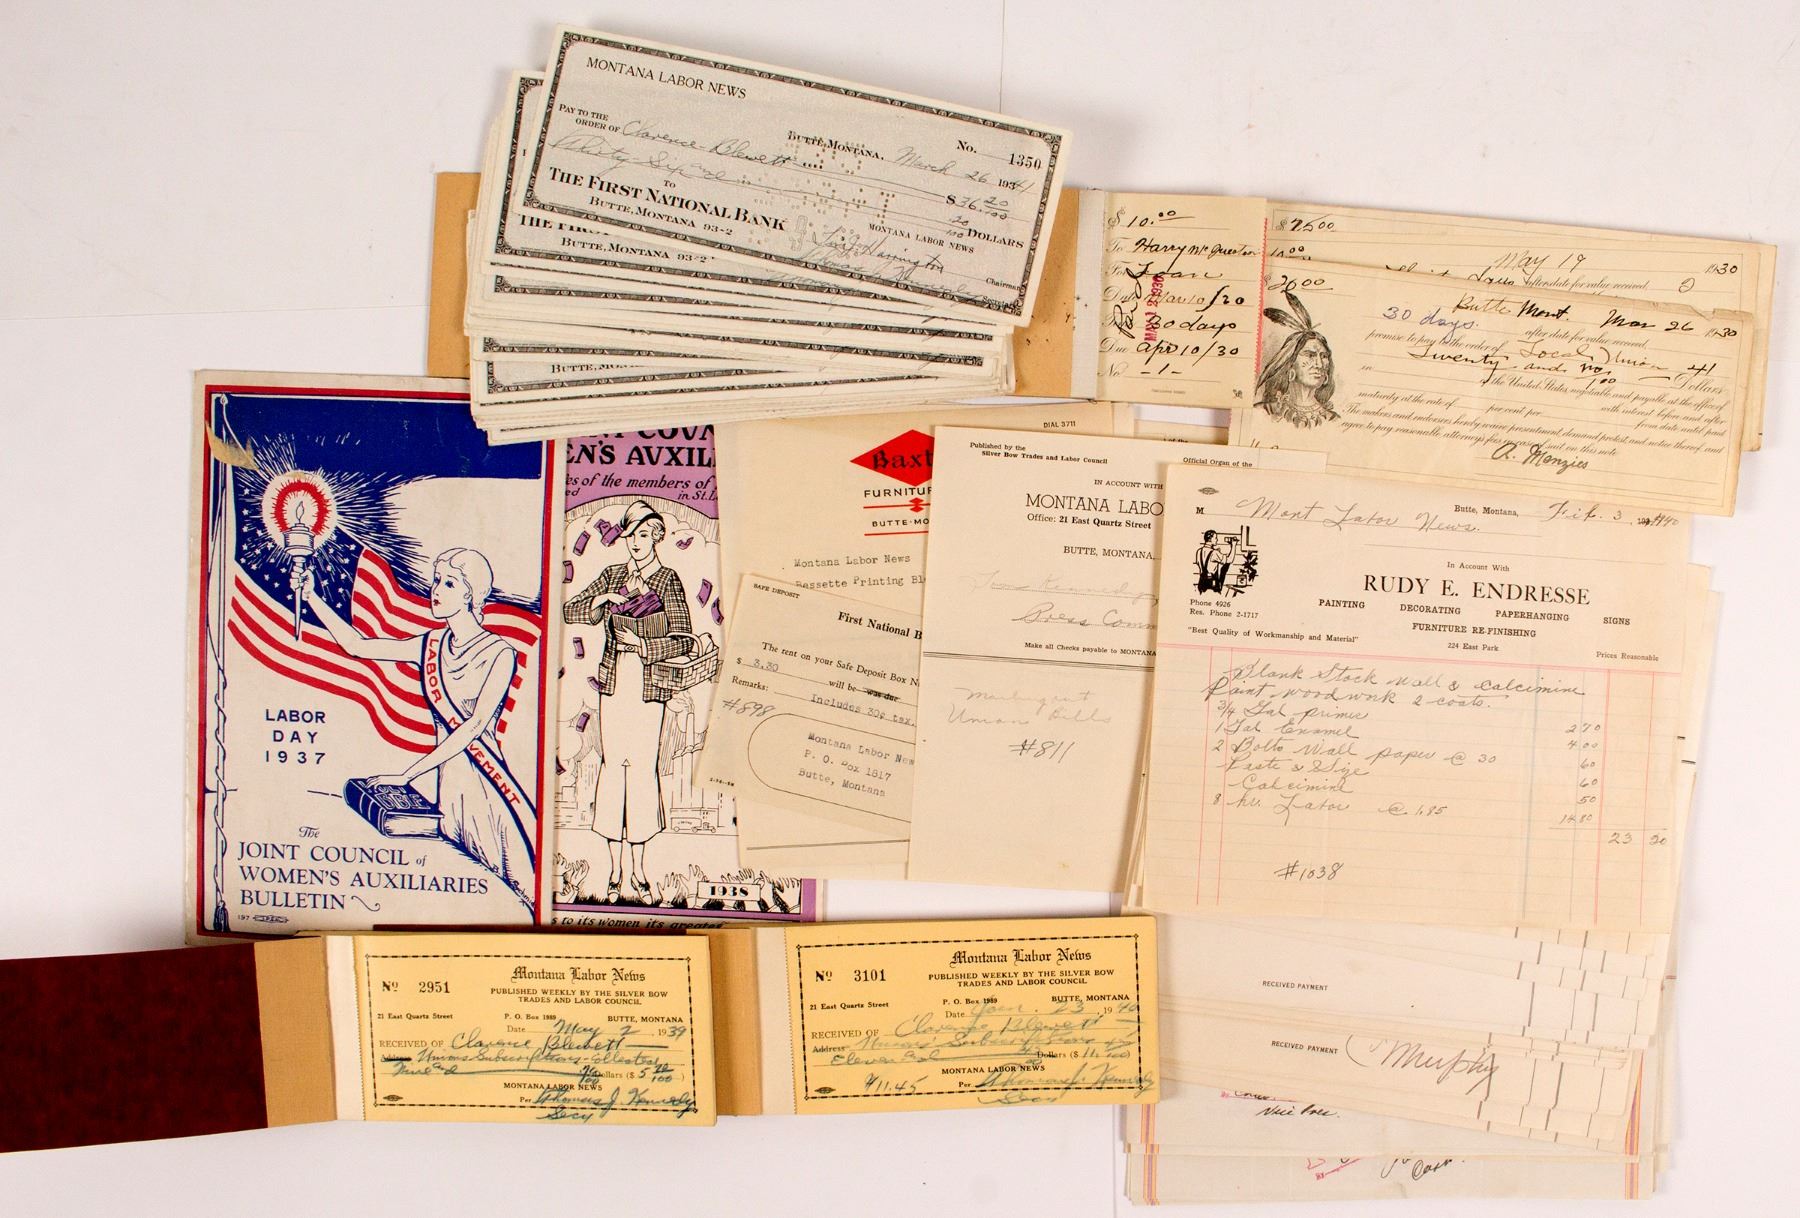 MONTANA LABOR NEWS
PAY TO THE
ORDER OF Clarence Blewett
BUTTE, MONTANA, March 26 1941
No. 1350
Thirty-Six and
$36 20/100
20/100 DOLLARS
TO
THE FIRST NATIONAL BANK
BUTTE, MONTANA 93-2
MONTANA LABOR NEWS
Harrington
Chairman
Secretary
THE FIRST
BUTTE, MONTANA 93-2
$10.00
To Harry McQuestion
For Loan
Date Mar 10/30
Time 30 days
Due Apr 10/30
No -1-
Paid
MAY 12 1930
$75.00
10.00
May 19 1930
after date for value received
$20.00
Butte Mont. Mar 26 1930
30 days after date for value received
promise to pay to the order of Local Union 41
Twenty and no/100 Dollars
in the United States, negotiable and payable at the office of
maturity at the rate of per cent per with interest before and after
from date until paid
The makers and endorsers hereby waive presentment, demand protest, and notice thereof and
agree to pay reasonable attorneys fees in case of suit on this note
A. Menzies
LABOR MOVEMENT
HOLY BIBLE
LABOR
DAY
1937
The
JOINT COUNCIL of
WOMEN'S AUXILIARIES
BULLETIN
197
NT COUN
EN'S AUXIL
es of the members of
ed in St. L
1938
s to its women its greates
DIAL 3711
Baxt
FURNITUR
BUTTE-MO
Montana Labor News
Bessette Printing Bl
SAFE DEPOSIT
First National B
The rent on your Safe Deposit Box N
$ 3.30 will be was due
Remarks: Includes 30¢ tax.
#898
Montana Labor New
P. O. Box 1817
Butte, Montana
Published by the
Silver Bow Trades and Labor Council
Official Organ of the
IN ACCOUNT WITH
MONTANA LABO
Office: 21 East Quartz Street
BUTTE, MONTANA,
Tom Kennedy,
Press Comm
Make all Checks payable to MONTANA
Union Bills
#811
M Mont Labor News.
Butte, Montana, Feb. 3, 1940
In Account With
RUDY E. ENDRESSE
Phone 4926
Res. Phone 2-1717
PAINTING DECORATING PAPERHANGING SIGNS
FURNITURE RE-FINISHING
"Best Quality of Workmanship and Material"
224 East Park
Prices Reasonable
Blank Stock wall & Calcimine
Paint woodwork 2 coats.
3/4 Gal primer 2 70
1 Gal Enamel 4 00
2 Bolts Wall paper @ 30 60
Paste & Size 60
Calcimine 50
8 hr. Labor @ 1.85 14 80
23 20
#1038
RECEIVED PAYMENT
RECEIVED PAYMENT Murphy
Montana Labor News
No 2951
PUBLISHED WEEKLY BY THE SILVER BOW
TRADES AND LABOR COUNCIL
21 East Quartz Street P. O. Box 1989 BUTTE, MONTANA
Date May 2, 1939
RECEIVED OF Clarence Blewett
Address Unions Subscriptions-Collected
Dollars ($ 5
MONTANA LABOR NEWS
Per Thomas J. Kennedy
Secy
Montana Labor News
No 3101
PUBLISHED WEEKLY BY THE SILVER BOW
TRADES AND LABOR COUNCIL
21 East Quartz Street P. O. Box 1989 BUTTE, MONTANA
Date Jan. 23, 1940
RECEIVED OF Clarence Blewett
Address Unions' Subscriptions
Eleven and 45/100 Dollars ($ 11. 45/100)
MONTANA LABOR NEWS
$11.45 Per Thomas J. Kennedy
Secy